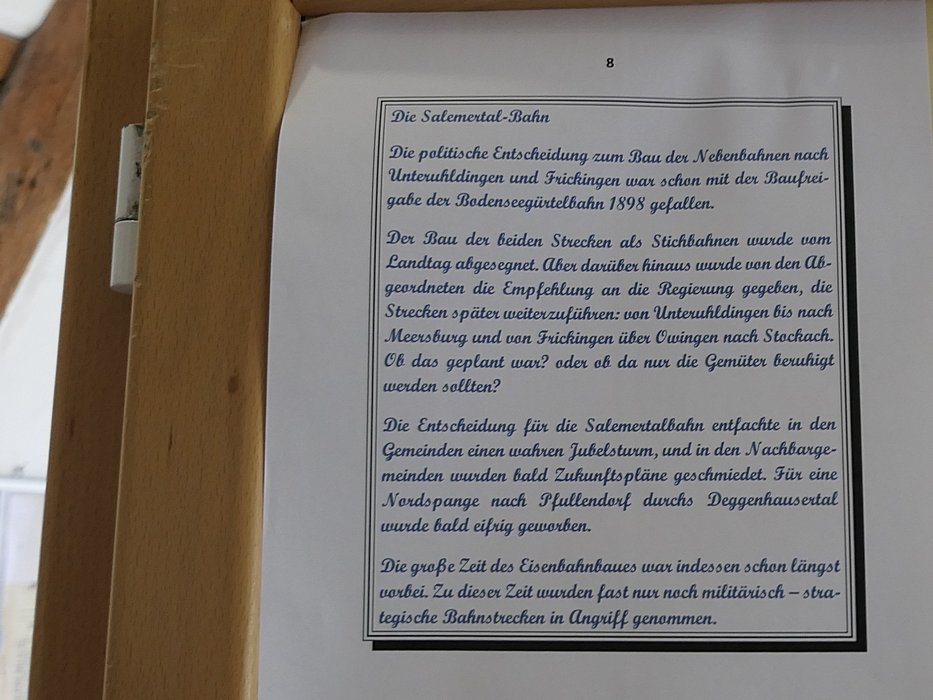 8
Die Salemertal-Bahn
Die politische Entscheidung zum Bau der Nebenbahnen nach
Unteruhldingen und Frickingen war schon mit der Baufrei-
gabe der Bodenseegürtelbahn 1898 gefallen.
Der Bau der beiden Strecken als Stichbahnen wurde vom
Landtag abgesegnet. Aber darüber hinaus wurde von den Ab-
geordneten die Empfehlung an die Regierung gegeben, die
Strecken später weiterzuführen: von Unteruhldingen bis nach
Meersburg und von Frickingen über Owingen nach Stockach.
Ob das geplant war? oder ob da nur die Gemüter beruhigt
werden sollten?
Die Entscheidung für die Salemertalbahn entfachte in den
Gemeinden einen wahren Jubelsturm, und in den Nachbarge-
meinden wurden bald Zukunftspläne geschmiedet. Für eine
Nordspange nach Pfullendorf durchs Deggenhausertal
wurde bald eifrig geworben.
Die große Zeit des Eisenbahnbaues war indessen schon längst
vorbei. Zu dieser Zeit wurden fast nur noch militärisch – stra-
tegische Bahnstrecken in Angriff genommen.